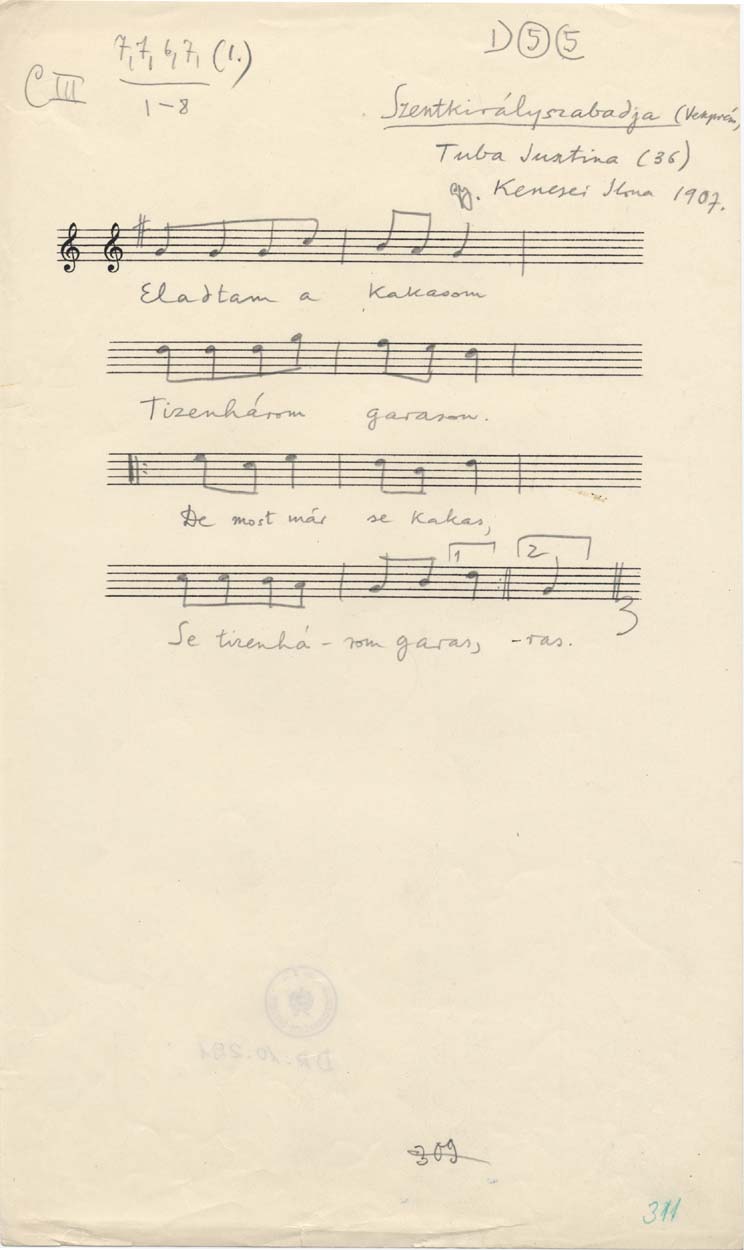 D 5 5
C III 7, 7, 6, 7, (1.)
1-8
Szentkirályszabadja (Veszprém)
Tuba Jusztina (36)
gy. Kenesei Ilona 1907.
Eladtam a kakasom
Tizenhárom garason.
De most már se kakas,
1 2
Se tizenhá - rom garas, -ras.
3
309
311